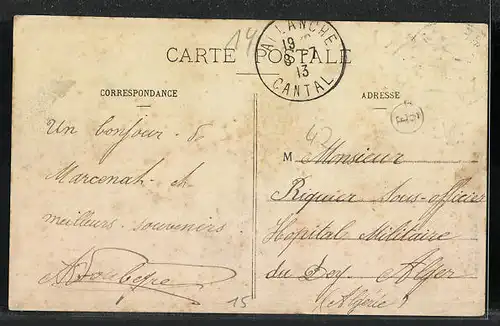 14
ALLANCHE
19
8-7
13
CANTAL
CARTE POSTALE
CORRESPONDANCE
Un bonjour de
Marcenat et
meilleurs souvenirs
15
ADRESSE
M Monsieur
Riquier Sous-officier
Hopital Militaire
du Dey Alger
(Algérie)